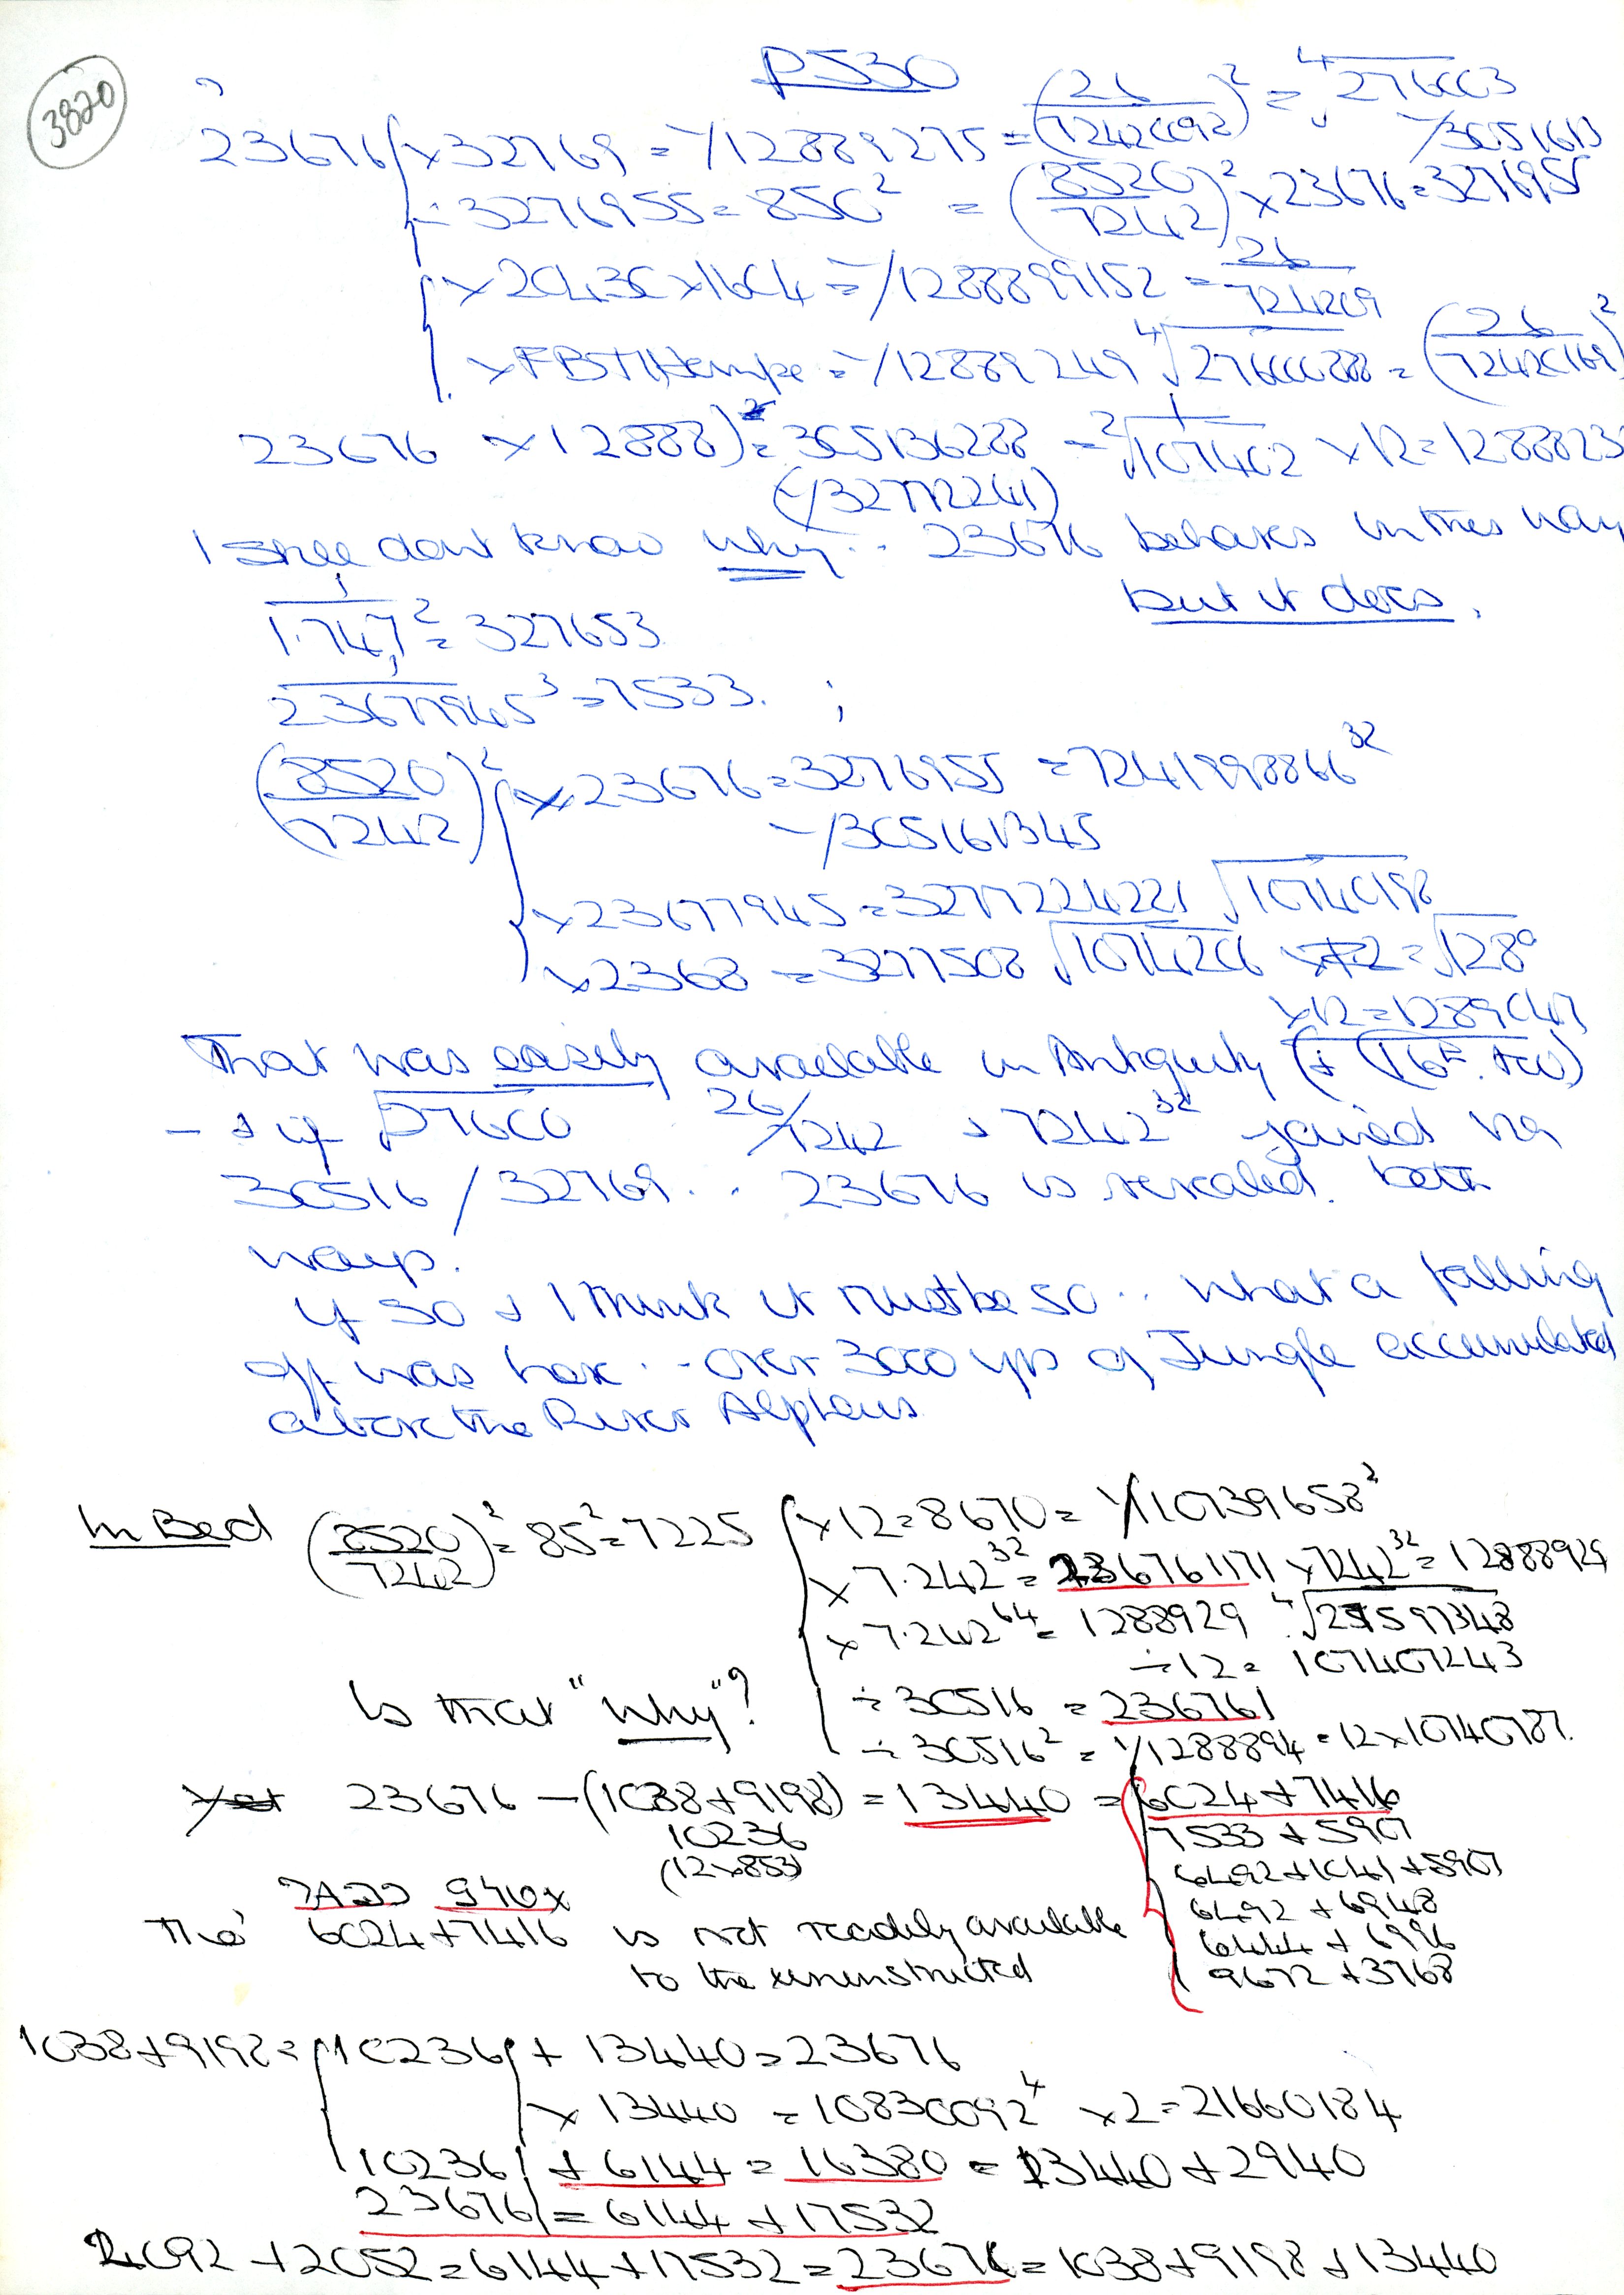 3820
P530
23676 × 32769 = 1/12889275 = (26/7242092)² = ⁴√276003
1/3051613
÷ 3276955 = 850² = (8520/7242)² × 23676 = 3276955
× 20436 × 1604 = 1/1288899152 = 26/724209
= 1/12889249 ⁴√27600288 = (26/72420169)²
23676 × 12888)² = 305136288 = ²√107402 × 12 = 1288823
(1/32772241)
I still dont know why .. 23676 behaves in this way
but it does.
1/1.747² = 327653
1/23677945³ = 7533. ;
(8520/7242)² × 23676 = 3276955 = 7241998866³²
1/305161345
× 23677945 = 3277224221 √10740198
× 2368 = 3277508 √1074206
× 12 = 1289047
That was easily available in Antiquity
– & if √27600 26/7242 & 7242³² joined via
30516 / 32769 .. 23676 is revealed. both
ways.
If so & I think it must be so .. what a falling
off was here .. – over 3000 yrs of Jungle accumulated
above the River Alpheus
In Bed (8520/7242)² = 85² = 7225 × 12 = 8670 = 1/10739658²
× 7.242³² = 236761171 × 7242³² = 12888929
× 7.242⁶⁴ = 1288929 ⁴√27597348
÷ 12 = 107407243
Is that "why"? ÷ 30516 = 236761
÷ 30516² = 1/1288894 = 12 × 10740787.
23676 – (1038 + 9198) = 13440 = 6024 + 7416
10236 7533 + 5907
(12 × 853) 6492 + 1041 + 5907
6492 + 6948
The 6024 + 7416 is not readily available 6444 + 6996
to the uninstructed 9672 + 3768
1038 + 9198 = 10236 + 13440 = 23676
× 13440 = 10830092⁴ × 2 = 21660184
10236 + 6144 = 16380 = 13440 + 2940
23676 = 6144 + 17532
4092 + 2052 = 6144 + 17532 = 23676 = 1038 + 9198 + 13440